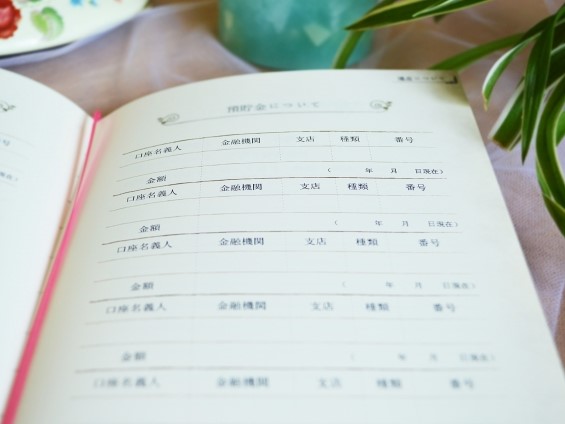 預貯金について
口座名義人 金融機関 支店 種類 番号
金額 （ 年 月 日現在）
口座名義人 金融機関 支店 種類 番号
金額 （ 年 月 日現在）
口座名義人 金融機関 支店 種類 番号
金額 （ 年 月 日現在）
口座名義人 金融機関 支店 種類 番号
金額 （ 年 月 日現在）
口座名義人 金融機関 支店 種類 番号